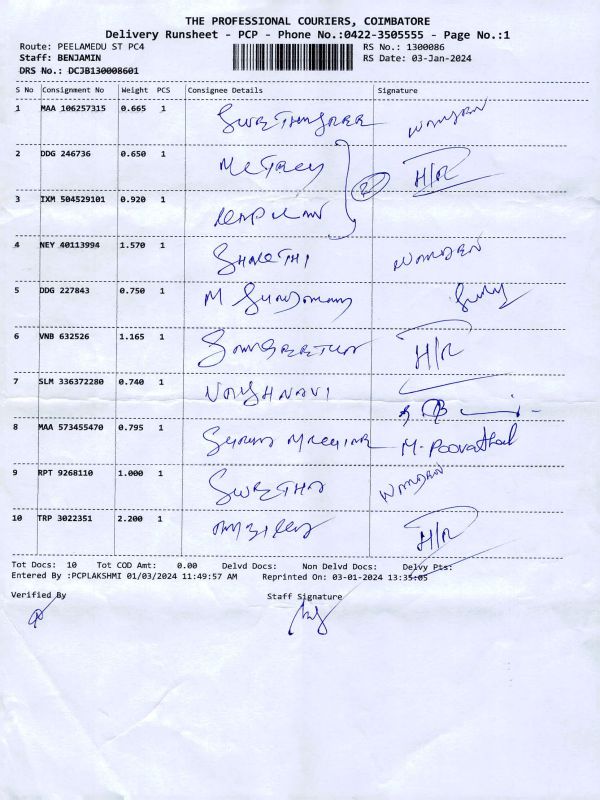 THE PROFESSIONAL COURIERS, COIMBATORE
Delivery Runsheet - PCP - Phone No.:0422-3505555 - Page No.:1
Route: PEELAMEDU ST PC4 RS No.: 1300086
Staff: BENJAMIN RS Date: 03-Jan-2024
DRS No.: DCJB130008601
S No Consignment No Weight PCS Consignee Details Signature
1 MAA 106257315 0.665 1 SWETHASREE WARDEN
2 DDG 246736 0.650 1 H/R
3 IXM 504529101 0.920 1
4 NEY 40113994 1.570 1 SHAKTHI WARDEN
5 DDG 227843 0.750 1 M
6 VNB 632526 1.165 1 H/R
7 SLM 336372280 0.740 1 VAISHNAVI
8 MAA 573455470 0.795 1 M. Poovathal
9 RPT 9268110 1.000 1 SWETHA WARDEN
10 TRP 3022351 2.200 1 H/R
Tot Docs: 10 Tot COD Amt: 0.00 Delvd Docs: Non Delvd Docs: Delvy Pts:
Entered By :PCPLAKSHMI 01/03/2024 11:49:57 AM Reprinted On: 03-01-2024 13:35:05
Verified By Staff Signature